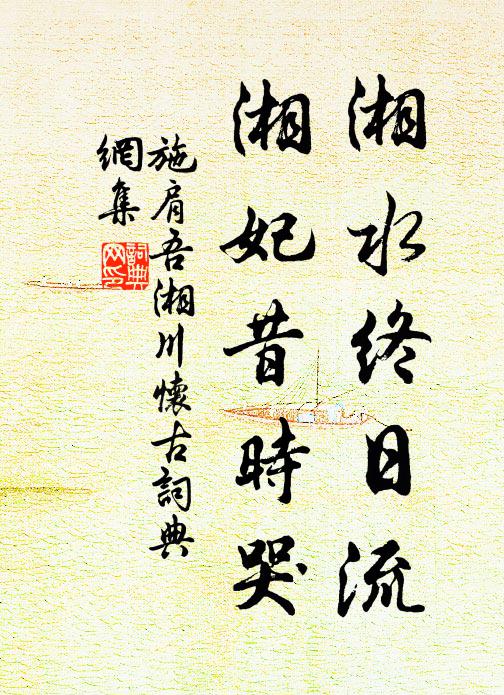 湘水終日流
湘妃昔時哭
施肩吾湘川懷古詞典
網集
詞典
网